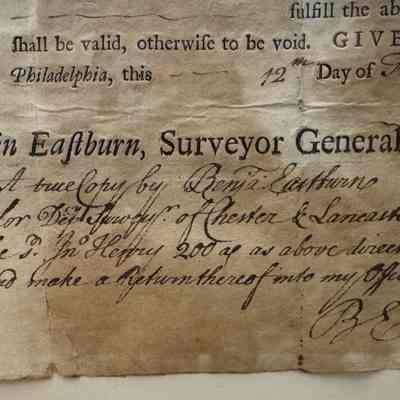 fulfill the ab
ſhall be valid, otherwiſe to be void. GIVE
Philadelphia, this — — 12th Day of
in Eaſtburn, Surveyor General
A true Copy by Benja: Eastburn
for Surveyr. of Chester & Lancast
Jno. Henry 200 as as above direc
nd make a Return thereof into my Offi
B E